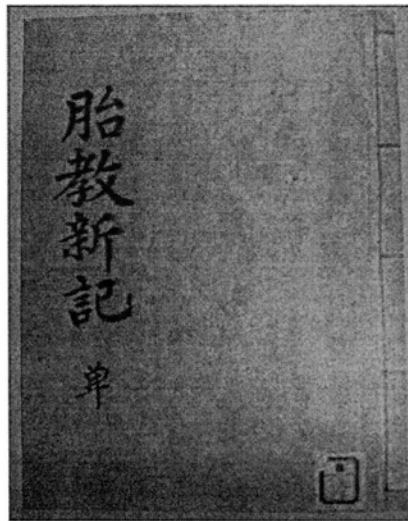 胎教新記
单